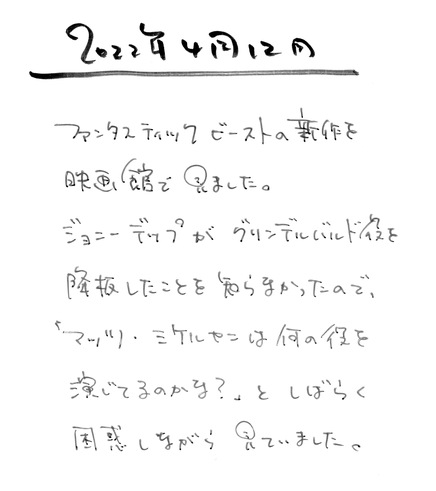 2022年4月12日
ファンタスティックビーストの新作を
映画館で見ました。
ジョニーデップがグリンデルバルド役を
降板したことを知らなかったので、
「マッツ・ミケルセンは何の役を
演じてるのかな？」としばらく
困惑しながら見ていました。